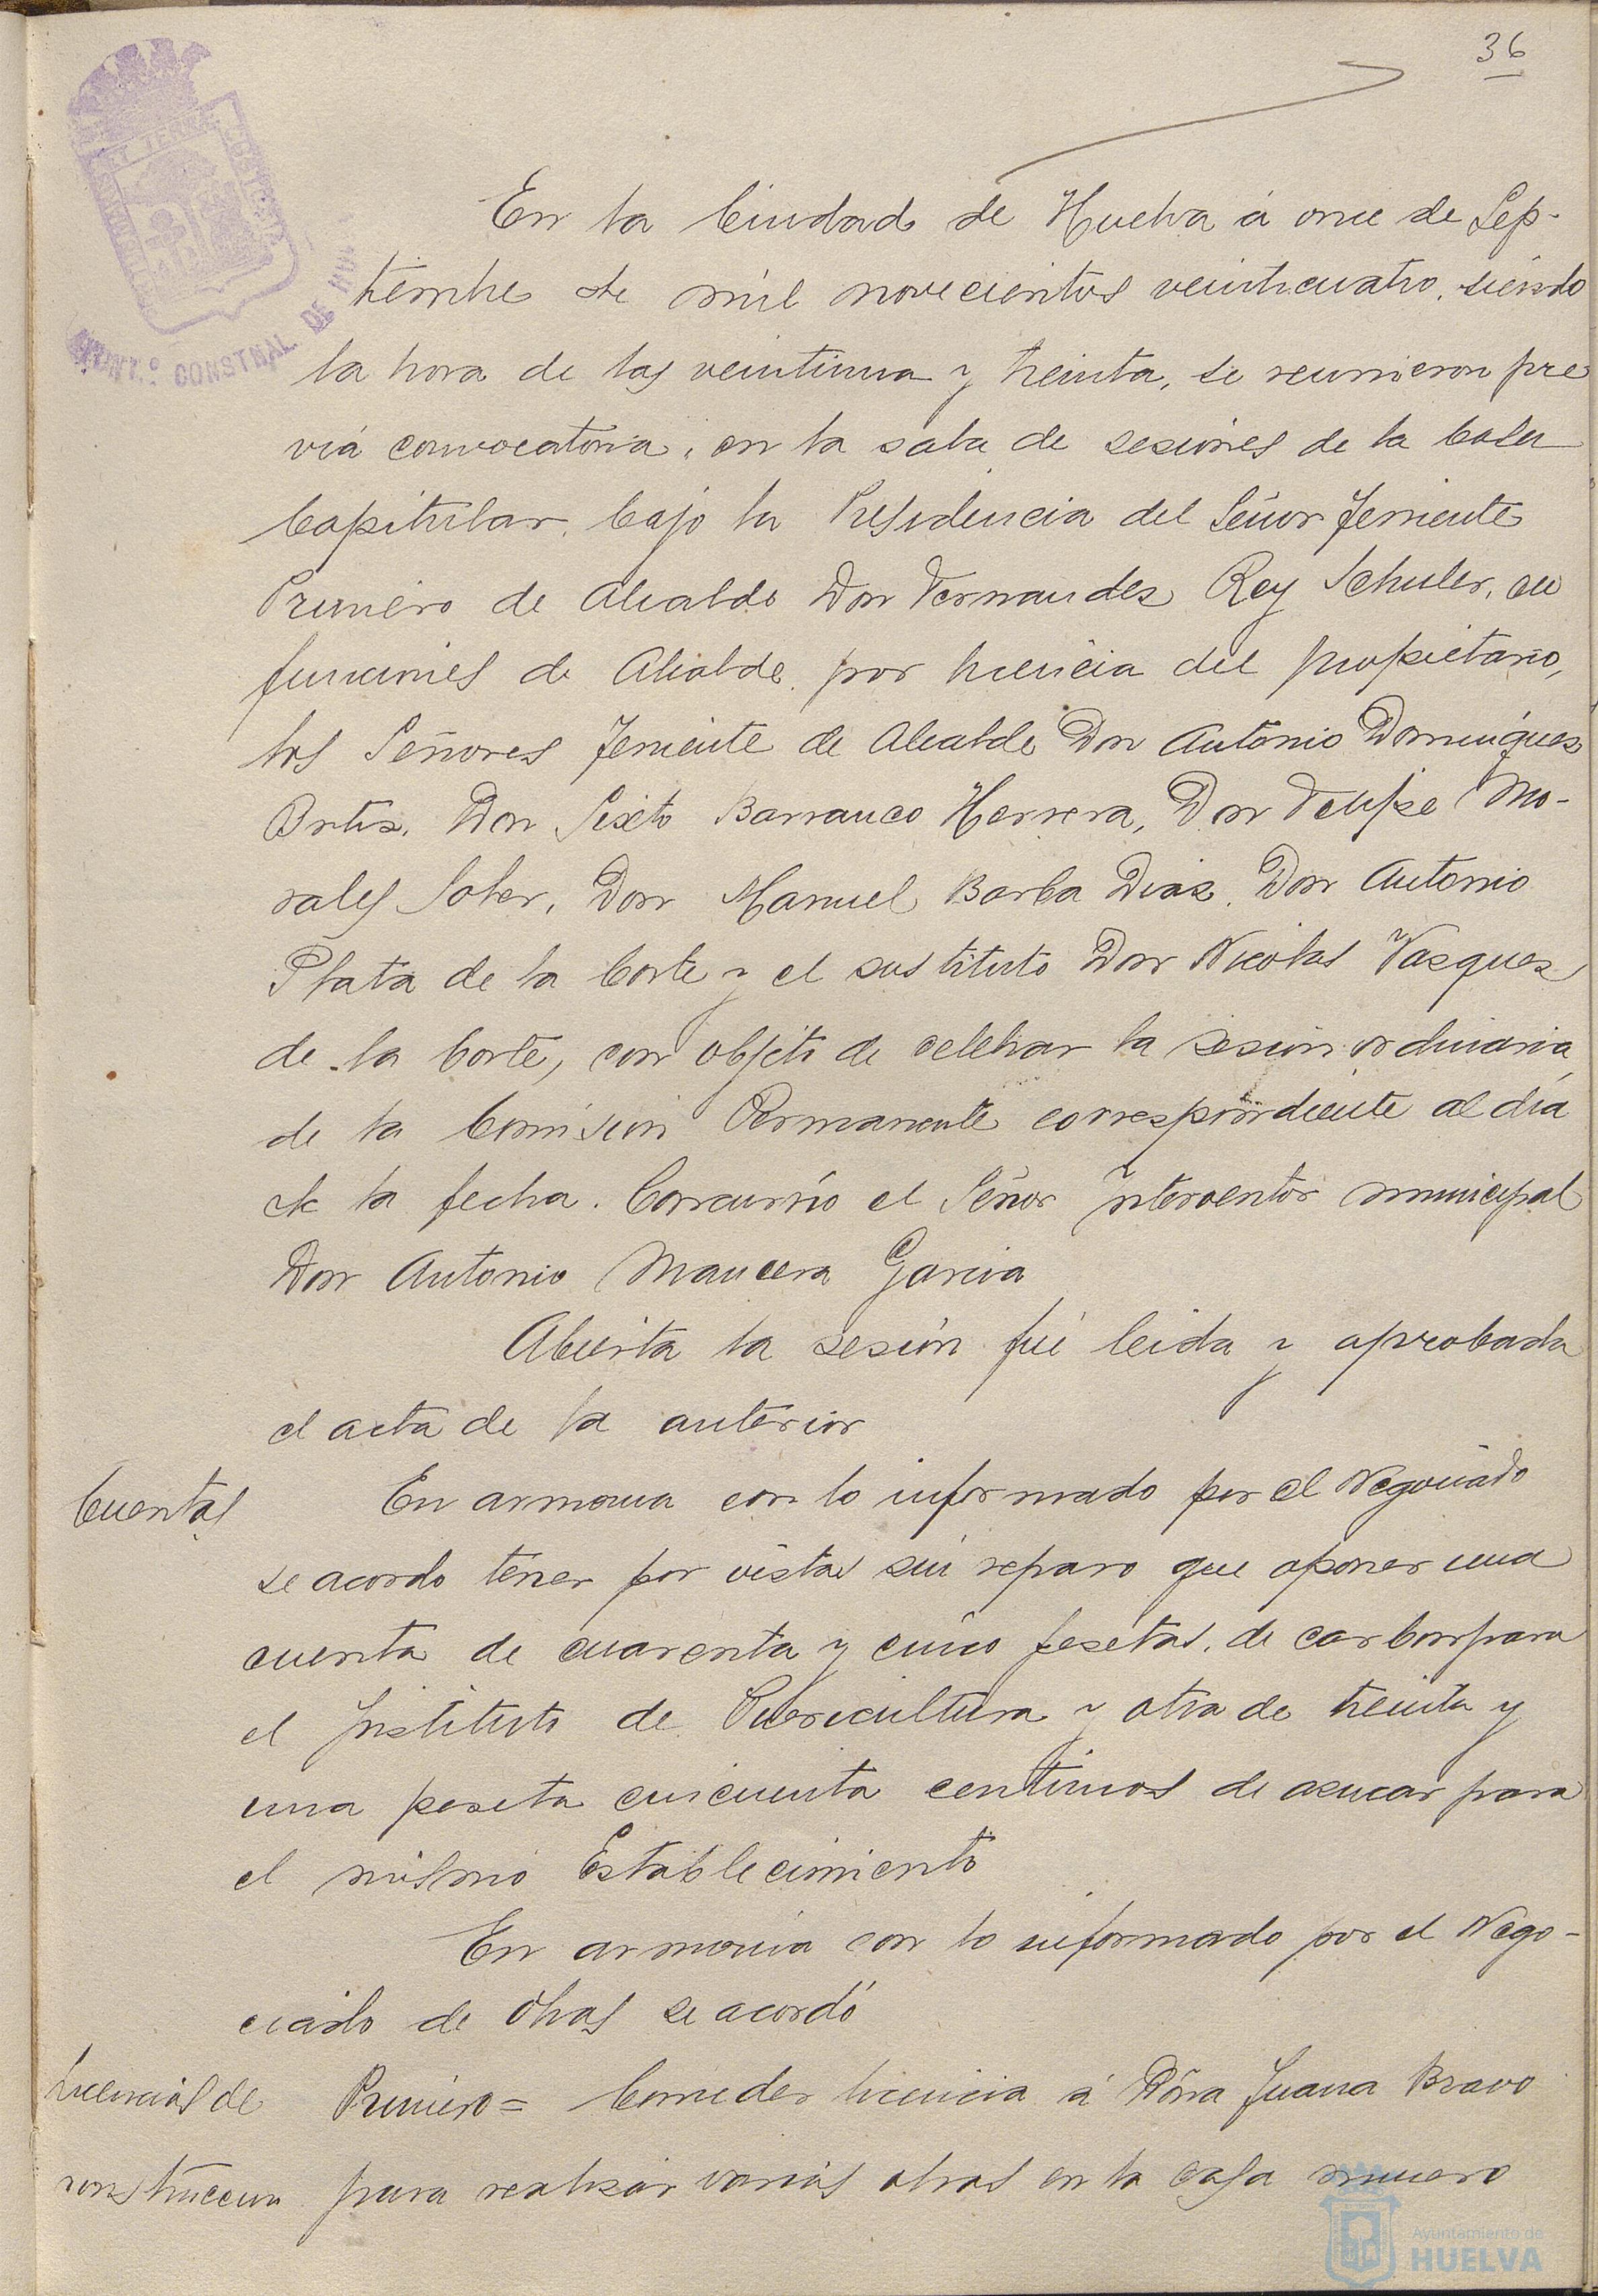 36
En la Ciudad de Huelva á once de Sep-
tiembre de mil novecientos veinticuatro, siendo
la hora de las veintiuna y treinta, se reunieron pre
via convocatoria, en la sala de sesiones de la Casa
Capitular, bajo la Presidencia del Señor Teniente
Primero de Alcalde Don Fernandez Rey Schuler, en
funciones de Alcalde por licencia del propietario,
los Señores Teniente de Alcalde Don Antonio Dominguez
Ortiz, Don Sixto Barranco Herrera, Don Felipe Mo-
rales Soler, Don Manuel Barba Diaz, Don Antonio
Plata de la Corte y el sustituto Don Nicolas Vazquez
de la Corte, con objeto de celebrar la sesion ordinaria
de la Comision Permanente correspondiente al dia
de la fecha. Concurrio el Señor Interventor municipal
Don Antonio Mancera Garcia
Abierta la sesión fué leida y aprobada
el acta de la anterior
Cuentas
En armonia con lo informado por el Negociado
se acordo tener por vistas sin reparo que oponer una
cuenta de cuarenta y cinco pesetas, de carbon para
el Instituto de Puericultura y otra de treinta y
una peseta cincuenta centimos de azucar para
el mismo Establecimiento
En armonia con lo informado por el Nego-
ciado de Obras se acordó
Licencias de
construccion
Primero = Conceder licencia á Doña Juana Bravo
para realizar varias obras en la casa numero
AYUNT.º CONSTNAL DE
Ayuntamiento de
HUELVA